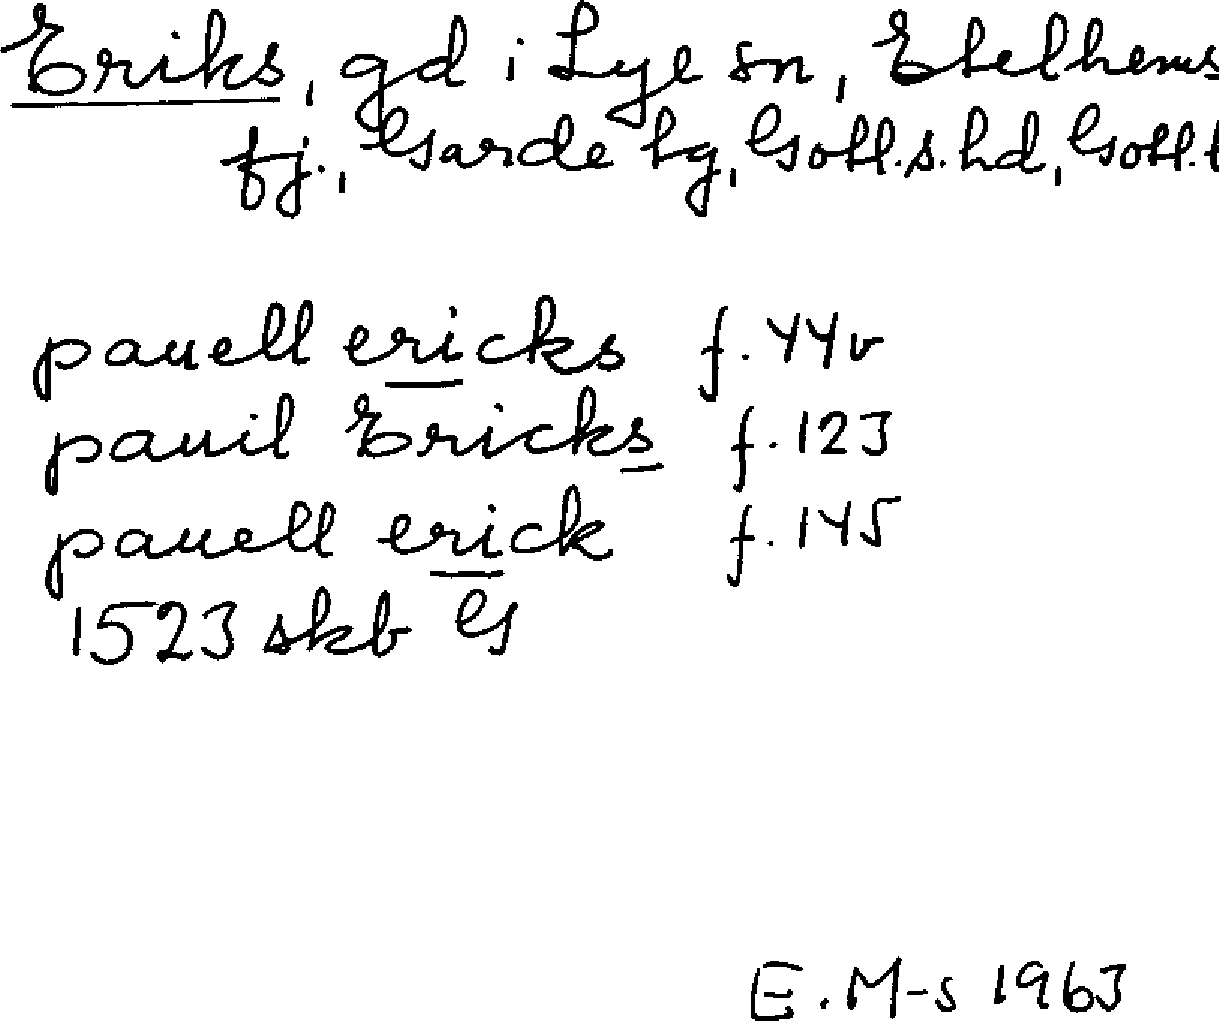 Eriks, gd i Lye sn, Etelhems
fj., Garde tg, Gotl.s.hd, Gotl.l
pauell ericks f. 44v
pauil Ericks f. 123
pauell erick f. 145
1523 skb G
E.M-s 1963